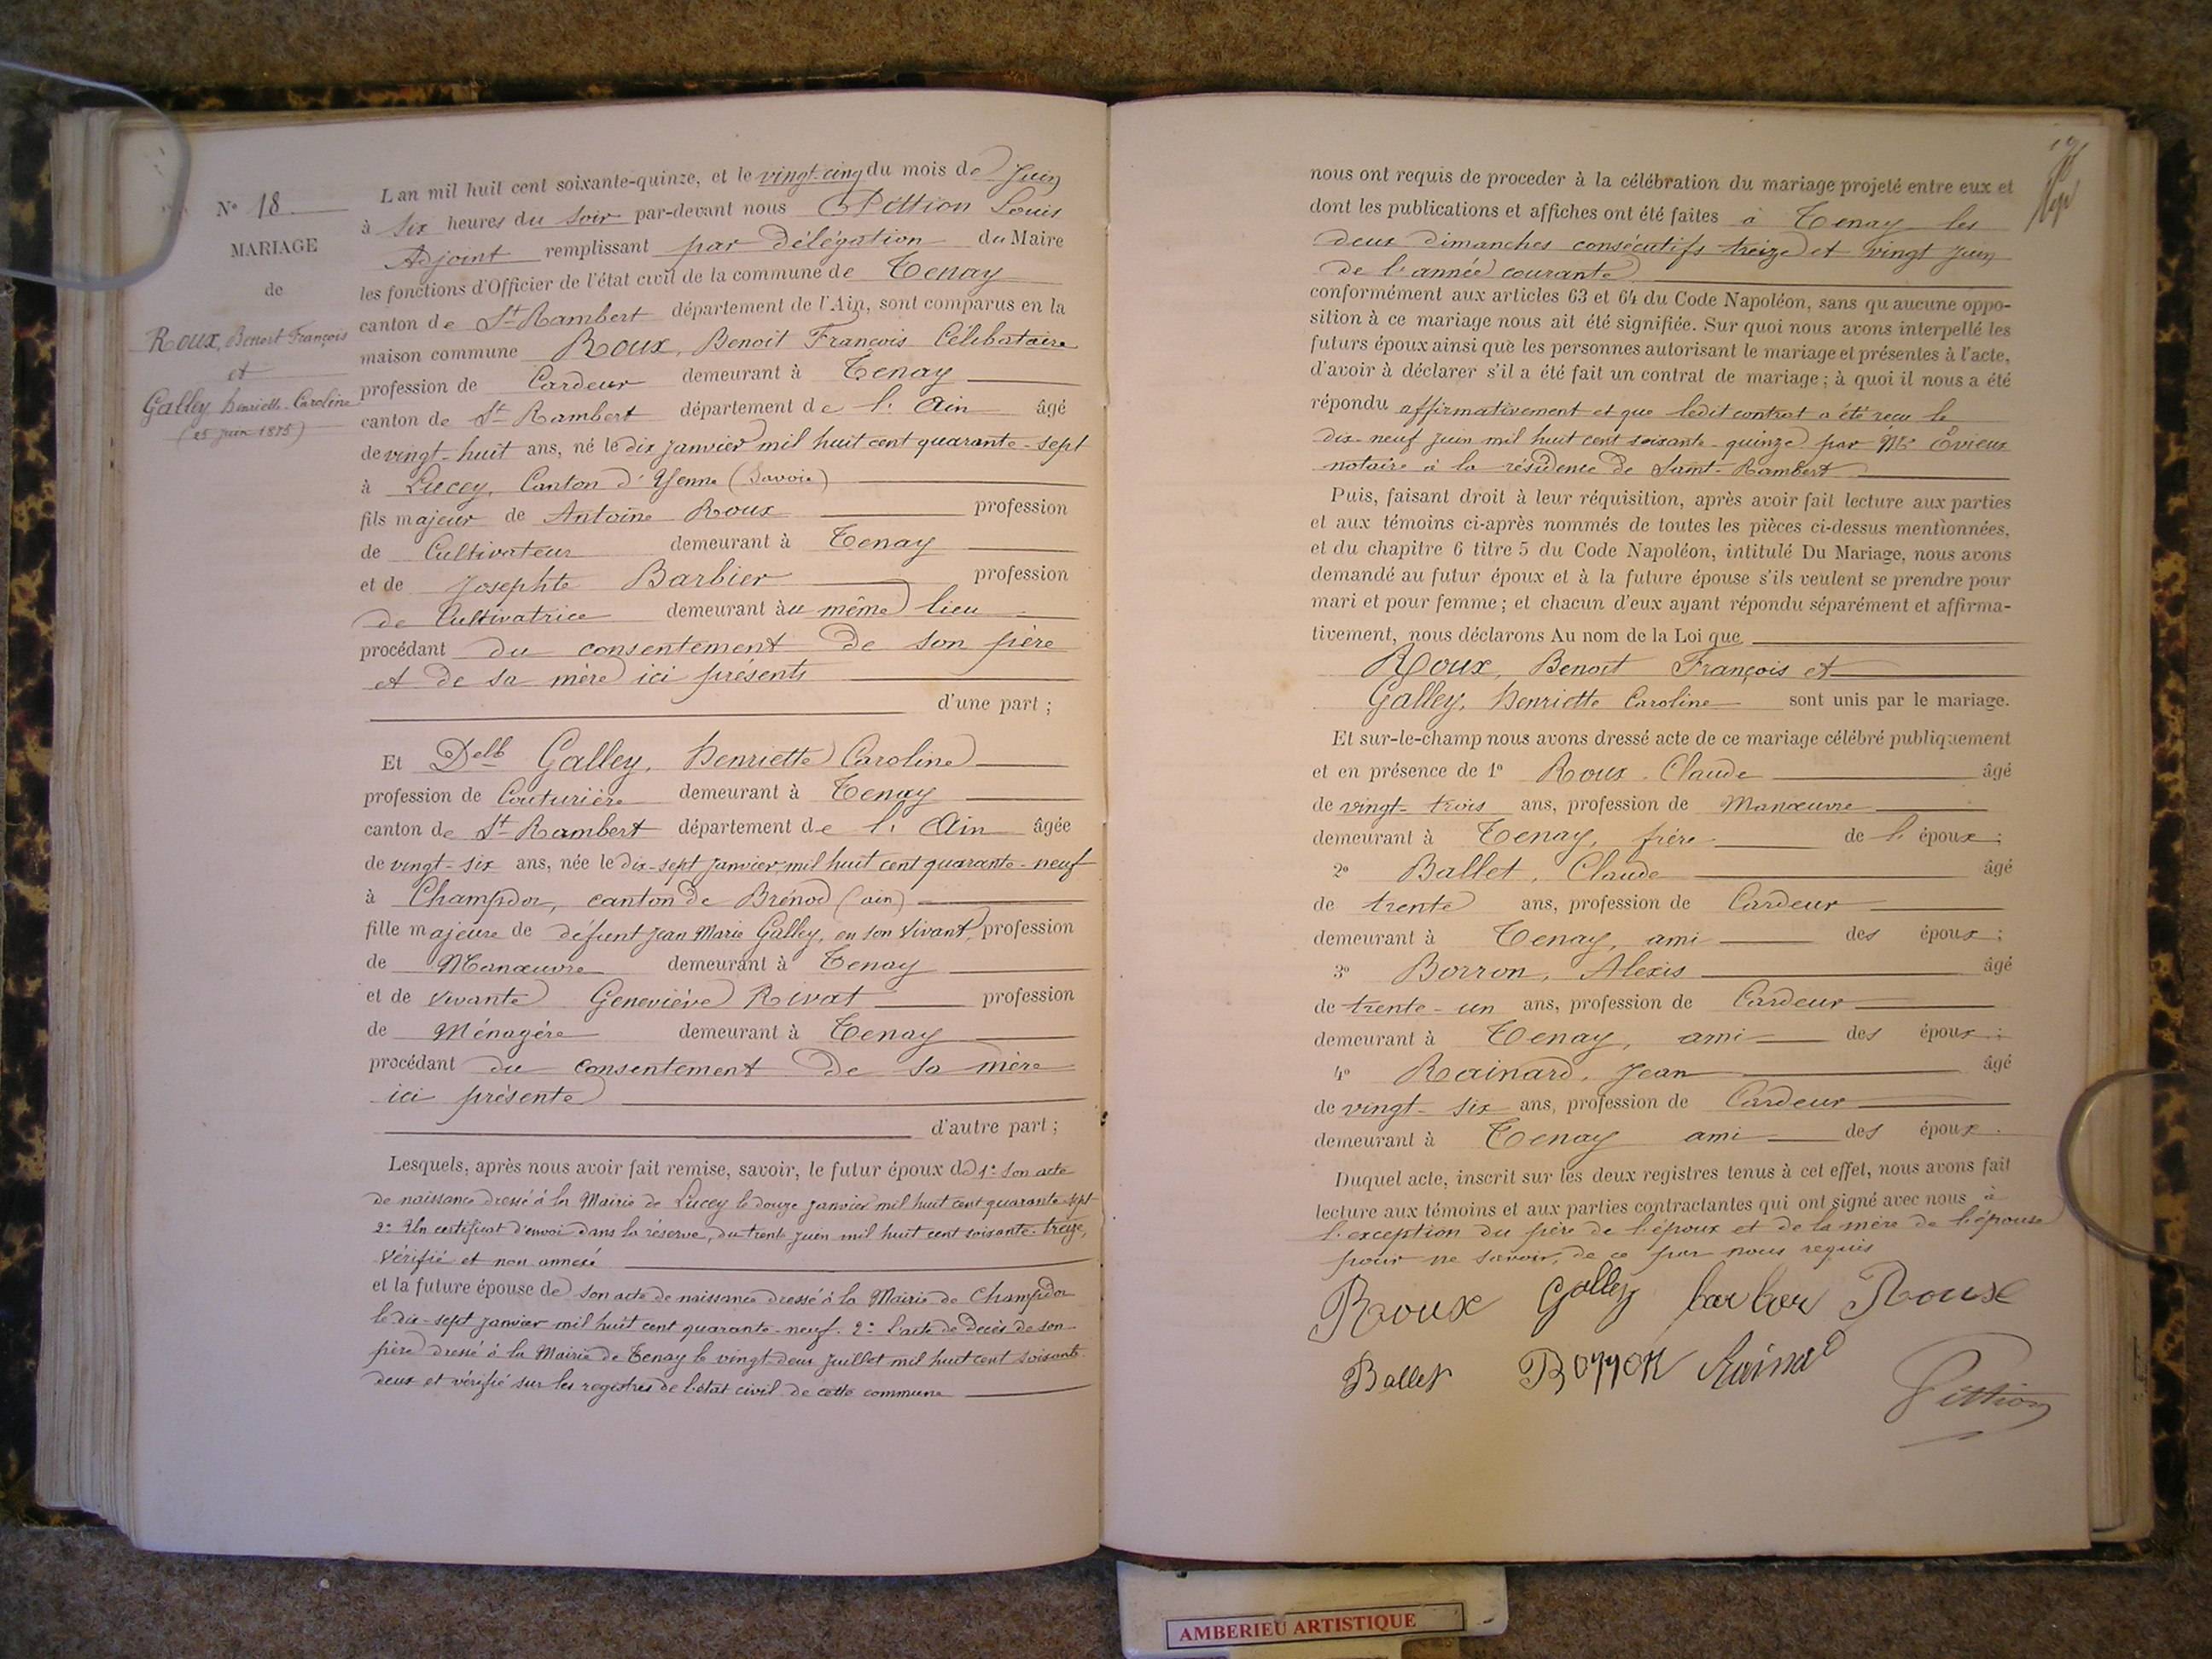 N° 18
MARIAGE
de
Roux, Benoit François
et
Galley, henriette Caroline
(25 juin 1875)
L'an mil huit cent soixante-quinze, et le vingt-cinq du mois de Juin
à six heures du soir par-devant nous Pittion Louis
Adjoint remplissant par délégation du Maire
les fonctions d'Officier de l'état civil de la commune de Tenay
canton de St Rambert département de l'Ain, sont comparus en la
maison commune Roux, Benoit François Célibataire
profession de Cardeur demeurant à Tenay
canton de St Rambert département de l'Ain âgé
de vingt-huit ans, né le dix janvier mil huit cent quarante-sept
à Lucey, Canton d'Yenne (Savoie)
fils majeur de Antoine Roux profession
de Cultivateur demeurant à Tenay
et de Josephte Barbier profession
de Cultivatrice demeurant àu même lieu
procédant du consentement de son père
et de sa mère ici présents
d'une part ;
Et Delle Galley, henriette Caroline
profession de Couturière demeurant à Tenay
canton de St Rambert département de l'Ain âgée
de vingt-six ans, née le dix-sept janvier mil huit cent quarante-neuf
à Champdor, canton de Brénod (ain)
fille majeure de défunt Jean Marie Galley, en son vivant, profession
de Manœuvre demeurant à Tenay
et de vivante Geneviève Rivat profession
de Ménagère demeurant à Tenay
procédant du consentement de sa mère
ici présente
d'autre part ;
Lesquels, après nous avoir fait remise, savoir, le futur époux de 1° son acte
de naissance dressé à la Mairie de Lucey le douze janvier mil huit cent quarante-sept
2° Un certificat d'envoi dans la réserve, du trente juin mil huit cent soixante-treize,
vérifié et non annexé
et la future épouse de son acte de naissance dressé à la Mairie de Champdor
le dix-sept janvier mil huit cent quarante-neuf. 2° l'acte de décès de son
père dressé à la Mairie de Tenay le vingt-deux Juillet mil huit cent soixante
deux et vérifié sur les registres de l'état civil de cette commune
nous ont requis de proceder à la célébration du mariage projeté entre eux et
dont les publications et affiches ont été faites à Tenay les
deux dimanches consécutifs treize et vingt juin
de l'année courante
conformément aux articles 63 et 64 du Code Napoléon, sans qu'aucune oppo-
sition à ce mariage nous ait été signifiée. Sur quoi nous avons interpellé les
futurs époux ainsi que les personnes autorisant le mariage et présentes à l'acte,
d'avoir à déclarer s'il a été fait un contrat de mariage ; à quoi il nous a été
répondu affirmativement et que ledit contrat a été reçu le
dix-neuf juin mil huit cent soixante-quinze par Me Évieux
notaire à la résidence de Saint-Rambert
Puis, faisant droit à leur réquisition, après avoir fait lecture aux parties
et aux témoins ci-après nommés de toutes les pièces ci-dessus mentionnées,
et du chapitre 6 titre 5 du Code Napoléon, intitulé Du Mariage, nous avons
demandé au futur époux et à la future épouse s'ils veulent se prendre pour
mari et pour femme ; et chacun d'eux ayant répondu séparément et affirma-
tivement, nous déclarons Au nom de la Loi que
Roux, Benoit François et
Galley, henriette Caroline sont unis par le mariage.
Et sur-le-champ nous avons dressé acte de ce mariage célébré publiquement
et en présence de 1° Roux Claude âgé
de vingt-trois ans, profession de Manœuvre
demeurant à Tenay, frère de l'époux ;
2° Ballet, Claude âgé
de trente ans, profession de Cardeur
demeurant à Tenay, ami des époux ;
3° Borron, Alexis âgé
de trente-un ans, profession de Cardeur
demeurant à Tenay, ami des époux ;
4° Rainard, Jean âgé
de vingt-six ans, profession de Cardeur
demeurant à Tenay ami des époux.
Duquel acte, inscrit sur les deux registres tenus à cet effet, nous avons fait
lecture aux témoins et aux parties contractantes qui ont signé avec nous à
l'exception du père de l'époux et de la mère de l'épouse
pour ne savoir, de ce par nous requis
Roux Galley barbier Roux
Ballet Borron Rainard
Pittion
AMBERIEU ARTISTIQUE